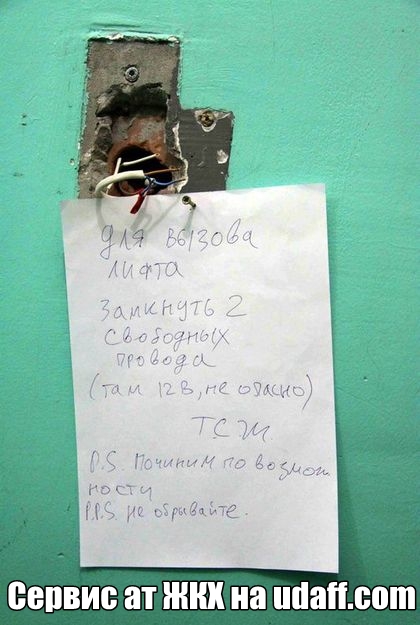 для вызова
лифта
Замкнуть 2
свободных
провода
(там 12В, не опасно)
Т.С.Ж.
P.S. Починим по возмож-
ности
P.P.S. не обрывайте.
Сервис ат ЖКХ на udaff.com